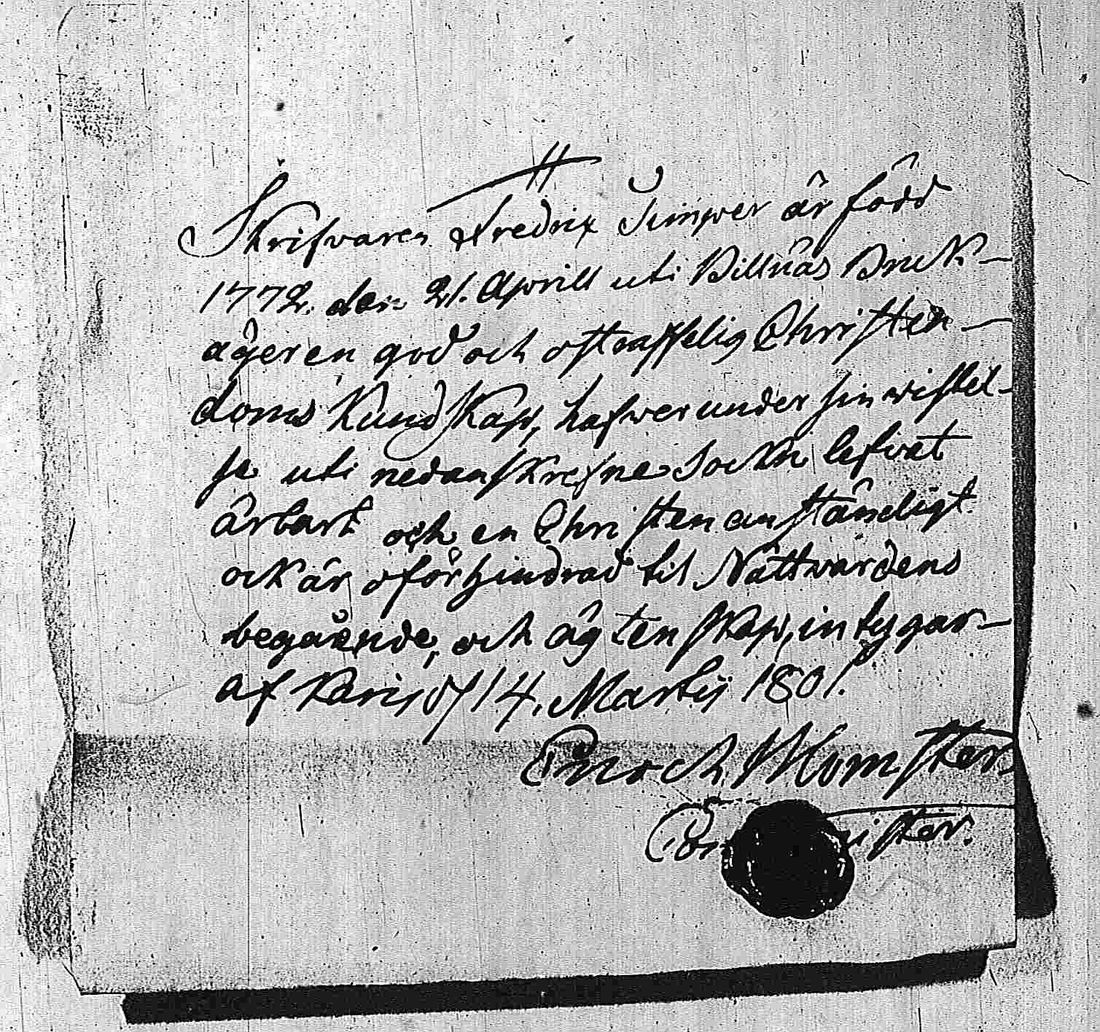 Skrifvaren Fredrix Simper är född
1772. den 21. Aprill uti Billnäs Bruk –
äger en god och ostraffelig Christen –
doms Kundskap, hafwer under sin wistel-
se uti nedanskrefne Sockn lefvat
ärbart och en Christen anständigt
ock är oförhindrad til Nattwardens
begående, och ägtenskap, intygar –
af Karis d/ 14. Martij 1801.
Enoch Blomster